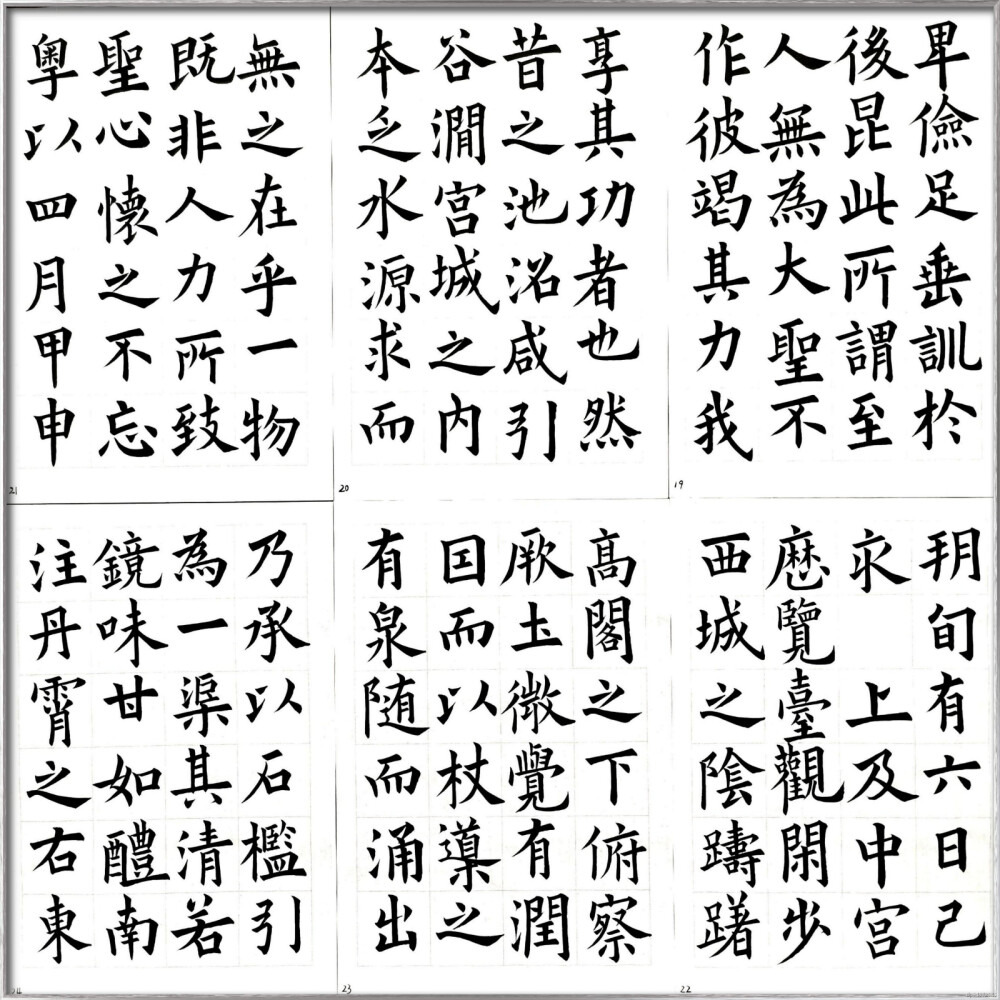 卑儉足垂訓於
後昆此所謂至
人無為大聖不
作彼竭其力我
19
享其功者也然
昔之池沼咸引
谷澗宮城之內
本乏水源求而
20
無之在乎一物
既非人力所致
聖心懷之不忘
粵以四月甲申
21
朔旬有六日己
亥 上及中宮
歷覽臺觀閑步
西城之陰躊躇
22
高閣之下俯察
厥土微覺有潤
因而以杖導之
有泉随而涌出
23
乃承以石檻引
為一渠其清若
鏡味甘如醴南
注丹霄之右東
24